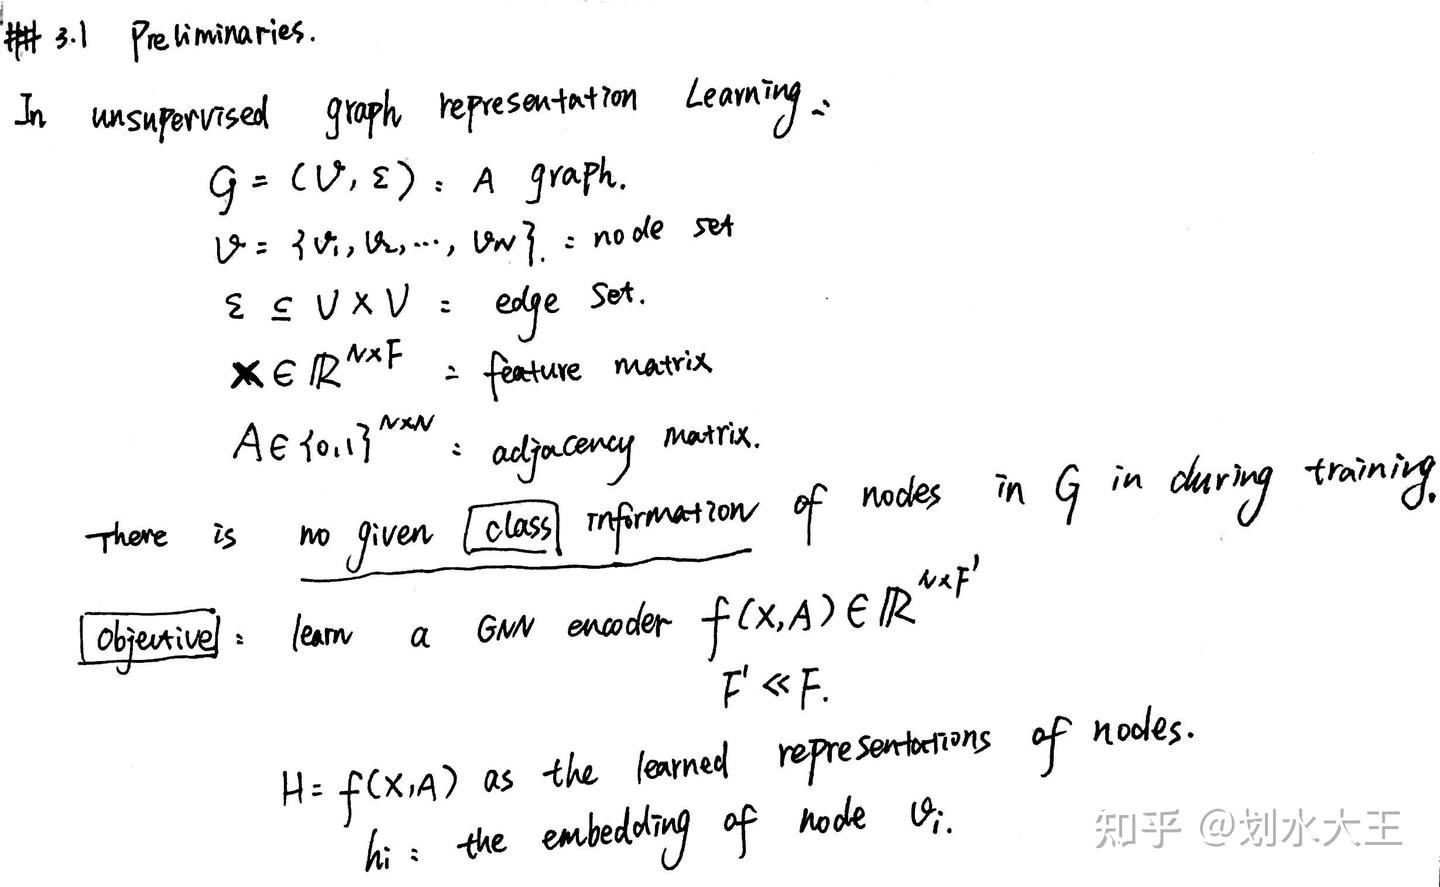 ### 3.1 Preliminaries.
In unsupervised graph representation Learning:
G = (V, ε) : A graph.
V = {v₁, v₂, ..., v_N}. : node set
ε ⊆ V × V : edge set.
X ∈ ℝ^{N×F} : feature matrix
A ∈ {0,1}^{N×N} : adjacency matrix.
There is no given class information of nodes in G in during training.
Objective : learn a GNN encoder f(X,A) ∈ ℝ^{N×F'}
F' ≪ F.
H = f(X,A) as the learned representations of nodes.
hi : the embedding of node vi.
知乎 @划水大王